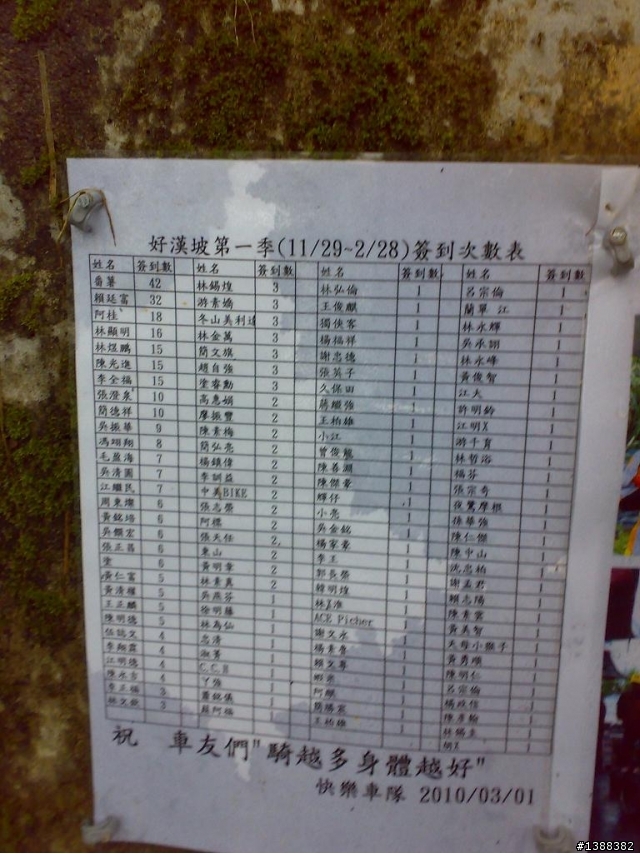 好漢坡第一季(11/29~2/28)簽到次數表
姓名 簽到數 姓名 簽到數 姓名 簽到數 姓名 簽到數
番薯 42 林錫煌 3 林弘倫 1 呂宗倫 1
賴廷富 32 游素嬌 3 王俊麒 1 蘭單 江 1
阿桂 18 冬山美利達 3 獨俠客 1 林永輝 1
林顯明 16 林金萬 3 楊福祥 1 吳承翊 1
林煜鵬 15 簡文旗 3 謝忠德 1 林永峰 1
陳光進 15 趙自強 3 張英子 1 黃俊智 1
李全福 15 堂睿勳 3 久保田 1 江大 1
張澄泉 10 高惠娟 2 蔣順強 1 許明鈴 1
簡德祥 10 摩振豐 2 王柏雄 1 江明X 1
吳振華 9 陳素梅 2 小江 1 游千育 1
馮翊翔 8 簡弘亮 2 曾俊龍 1 林哲浴 1
毛盈海 7 楊鎮偉 2 陳善淵 1 福芬 1
吳清圓 7 李訓益 2 陳傑豪 1 張宗奇 1
江繼民 7 中美BIKE 2 輝仔 1
周東燦 6 張志榮 2 小亮 1 孫華強 1
黃銘培 6 阿標 2 吳金銘 1 陳仁傑 1
吳顯宏 6 張天任 2 楊家豪 1 陳中山 1
張正昌 6 東山 2 李王 1 沈忠柏 1
堂 6 黃明章 2 郭長榮 1 謝孟君 1
黃仁富 5 林素真 2 韓明煌 1 賴志陽 1
黃清權 5 吳燕芬 1 林X淮 1 陳素雲 1
王正麟 5 徐明藤 1 ACE Picher 1 黃美智 1
陳明德 5 林為仙 1 謝文永 1 天母小辣子 1
任誌文 4 志清 1 楊素香 1 黃勇順 1
李翔霖 4 淑菁 1 賴文尊 1 陳明仁 1
江明德 4 C.C.H 1 1 呂宗倫 1
陳永方 4 丫強 1 阿麒 1 楊政信 1
李正福 3 蕭銘儀 1 簡勝宏 1 陳彥翰 1
林文欽 3 蘇阿福 1 王柏雄 1 林錫圭 1
胡X 1
祝 車友們"騎越多身體越好"
快樂車隊 2010/03/01
#1388382